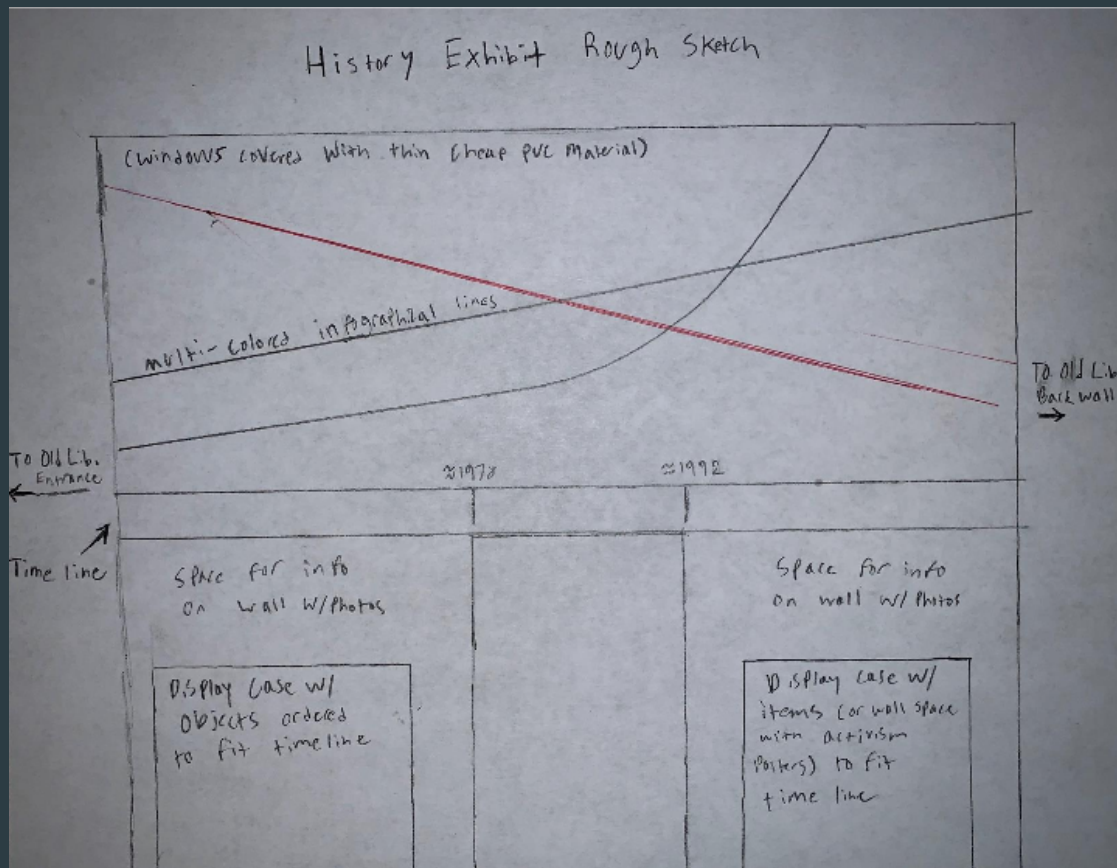 History Exhibit Rough Sketch
(windows covered with thin cheap pvc material)
multi-colored infographical lines
To Old Lib
Back wall
To Old Lib.
Entrance
≈1978
≈1992
Time line
Space for info
on wall w/Photos
Space for info
on wall w/Photos
Display case w/
objects ordered
to fit timeline
Display case w/
items (or wall space
with activism
Posters) to fit
time line